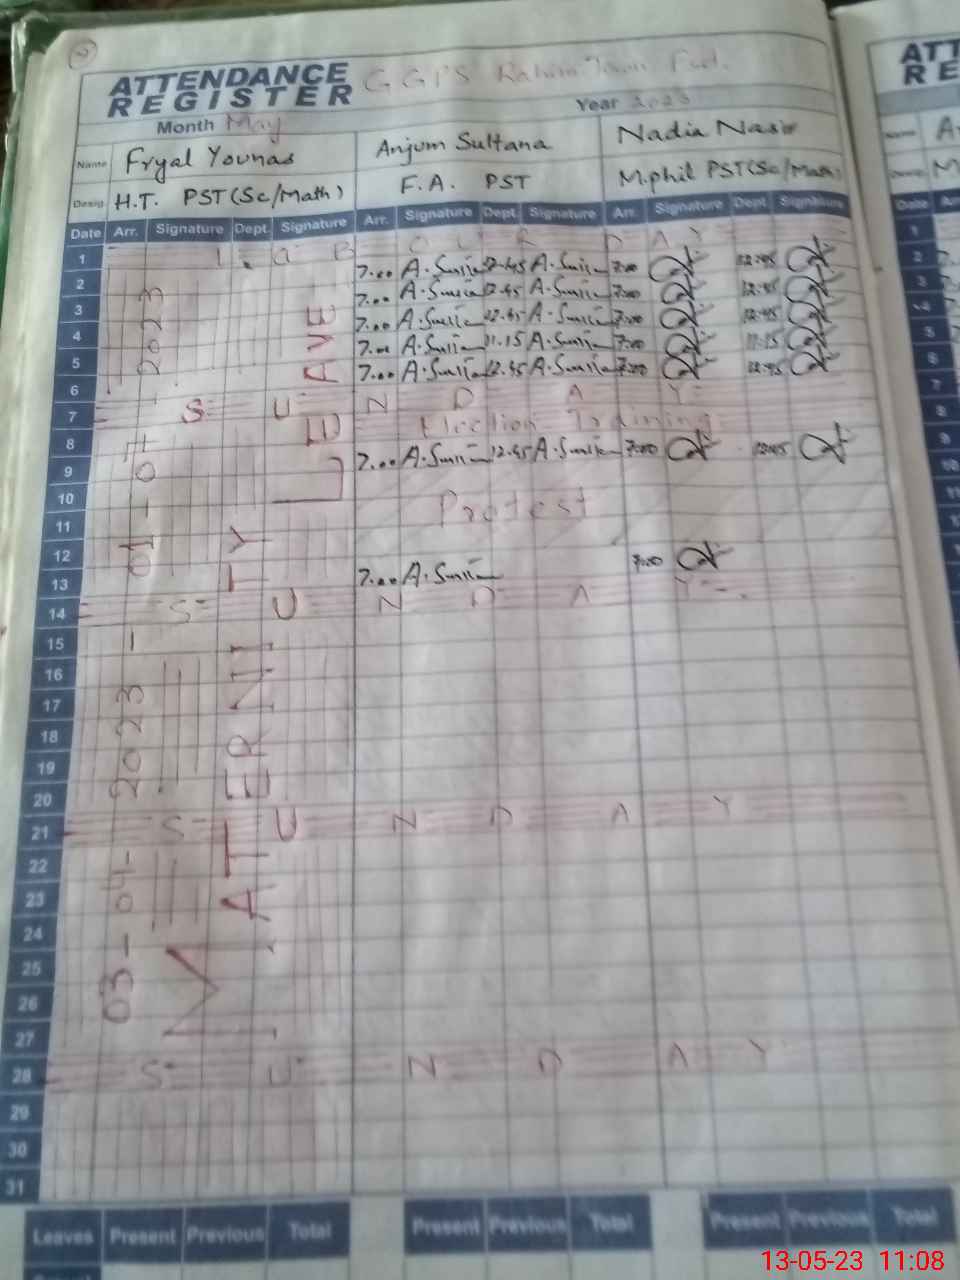 ATTENDANCE
REGISTER
GGPS Rahim Town Fsd.
Month May
Year 2023
Name Fryal Younas Anjum Sultana Nadia Nasir
Desig H.T. PST (Sc/Math) F.A. PST M.phil PST (Sc/Math)
Date Arr. Signature Dept. Signature Arr. Signature Dept. Signature Arr. Signature Dept. Signature
1 L a B O U R D A Y
2 7.00 12.45 7:00 12:45
3 7.00 12.45 7:00 12:45
4 7.00 12.45 7:00 12:45
5 7.00 11.15 7:00 11:15
6 7.00 12.45 7:00 12:45
7 S U N D A Y
8 Election Training
9 7.00 12.45 7:00 12:45
10
11 Protest
12
13 7.00 7:00
14 S U N D A Y
15
16
17
18
19
20
21 S U N D A Y
22
23
24
25
26
27
28 S U N D A Y
29
30
31
03-04-2023 - 01-07-2023
MATERNITY LEAVE
Leaves Present Previous Total Present Previous Total Present Previous Total
ATT
RE
Name
Desig M
Date
1
2
3
4
5
6
7
8
9
10
11
13-05-23 11:08